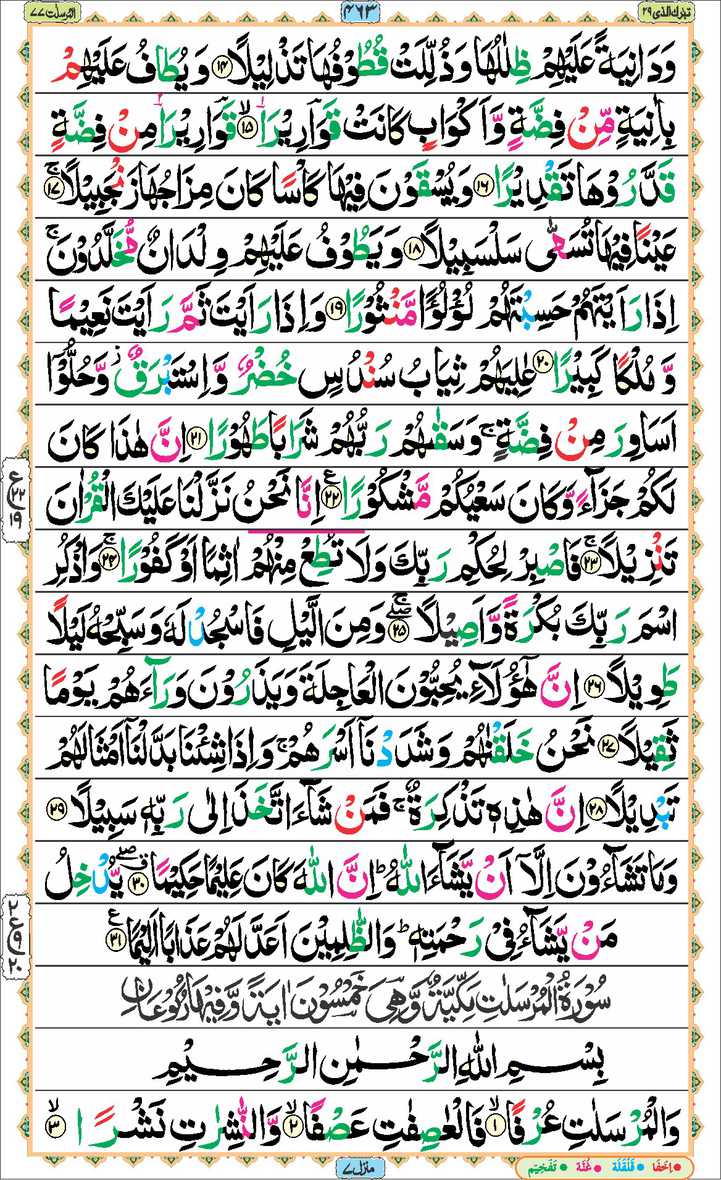 تبٰرك الذى ٢٩
٤٦٣
المرسلت ٧٧
وَدَانِيَةً عَلَيْهِمْ ظِلٰلُهَا وَذُلِّلَتْ قُطُوْفُهَا تَذْلِيْلًا ﴿١٤﴾ وَيُطَافُ عَلَيْهِمْ
بِاٰنِيَةٍ مِّنْ فِضَّةٍ وَّاَكْوَابٍ كَانَتْ قَوَارِيْرَا۠ ﴿١٥﴾ قَوَارِيْرَا۠ مِنْ فِضَّةٍ
قَدَّرُوْهَا تَقْدِيْرًا ﴿١٦﴾ وَيُسْقَوْنَ فِيْهَا كَاْسًا كَانَ مِزَاجُهَا زَنْجَبِيْلًا ﴿١٧﴾
عَيْنًا فِيْهَا تُسَمّٰى سَلْسَبِيْلًا ﴿١٨﴾ وَيَطُوْفُ عَلَيْهِمْ وِلْدَانٌ مُّخَلَّدُوْنَ ۚ
اِذَا رَاَيْتَهُمْ حَسِبْتَهُمْ لُؤْلُؤًا مَّنْثُوْرًا ﴿١٩﴾ وَاِذَا رَاَيْتَ ثَمَّ رَاَيْتَ نَعِيْمًا
وَّمُلْكًا كَبِيْرًا ﴿٢٠﴾ عٰلِيَهُمْ ثِيَابُ سُنْدُسٍ خُضْرٌ وَّاِسْتَبْرَقٌ ۡ وَّحُلُّوْۤا
اَسَاوِرَ مِنْ فِضَّةٍ ۚ وَسَقٰىهُمْ رَبُّهُمْ شَرَابًا طَهُوْرًا ﴿٢١﴾ اِنَّ هٰذَا كَانَ
لَكُمْ جَزَآءً وَّكَانَ سَعْيُكُمْ مَّشْكُوْرًا ﴿٢٢﴾ ع اِنَّا نَحْنُ نَزَّلْنَا عَلَيْكَ الْقُرْاٰنَ
تَنْزِيْلًا ﴿٢٣﴾ فَاصْبِرْ لِحُكْمِ رَبِّكَ وَلَا تُطِعْ مِنْهُمْ اٰثِمًا اَوْ كَفُوْرًا ﴿٢٤﴾ وَاذْكُرِ
اسْمَ رَبِّكَ بُكْرَةً وَّاَصِيْلًا ﴿٢٥﴾ وَمِنَ الَّيْلِ فَاسْجُدْ لَهٗ وَسَبِّحْهُ لَيْلًا
طَوِيْلًا ﴿٢٦﴾ اِنَّ هٰۤؤُلَآءِ يُحِبُّوْنَ الْعَاجِلَةَ وَيَذَرُوْنَ وَرَآءَهُمْ يَوْمًا
ثَقِيْلًا ﴿٢٧﴾ نَحْنُ خَلَقْنٰهُمْ وَشَدَدْنَاۤ اَسْرَهُمْ ۚ وَاِذَا شِئْنَا بَدَّلْنَاۤ اَمْثَالَهُمْ
تَبْدِيْلًا ﴿٢٨﴾ اِنَّ هٰذِهٖ تَذْكِرَةٌ ۚ فَمَنْ شَآءَ اتَّخَذَ اِلٰى رَبِّهٖ سَبِيْلًا ﴿٢٩﴾
وَمَا تَشَآءُوْنَ اِلَّاۤ اَنْ يَّشَآءَ اللّٰهُ ؕ اِنَّ اللّٰهَ كَانَ عَلِيْمًا حَكِيْمًا ﴿٣٠﴾ يُّدْخِلُ
مَنْ يَّشَآءُ فِىْ رَحْمَتِهٖ ؕ وَالظّٰلِمِيْنَ اَعَدَّ لَهُمْ عَذَابًا اَلِيْمًا ﴿٣١﴾ ع
سُوْرَةُ الْمُرْسَلٰتِ مَكِّيَّةٌ وَّهِىَ خَمْسُوْنَ اٰيَةً وَّفِيْهَا رُكُوْعَانِ
بِسْمِ اللّٰهِ الرَّحْمٰنِ الرَّحِيْمِ
وَالْمُرْسَلٰتِ عُرْفًا ﴿١﴾ فَالْعٰصِفٰتِ عَصْفًا ﴿٢﴾ وَّالنّٰشِرٰتِ نَشْرًا ﴿٣﴾
ع ٢٢ ١٩
ع ٩ ٢٠
منزل ٧
اِخفا قلقلة غُنّة تفخيم